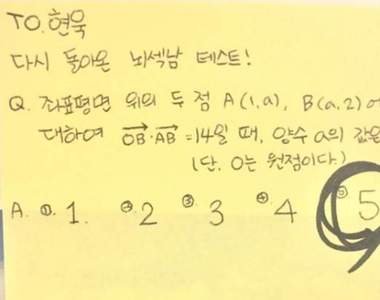 TO. 현욱
다시 돌아온 뇌섹남 테스트!
Q. 좌표평면 위의 두 점 A(1,a), B(a,2)에
대하여 OB·AB=14일 때, 양수 a의 값은
(단, O는 원점이다.)
A. ① 1. ② 2 ③ 3 ④ 4 ⑤ 5